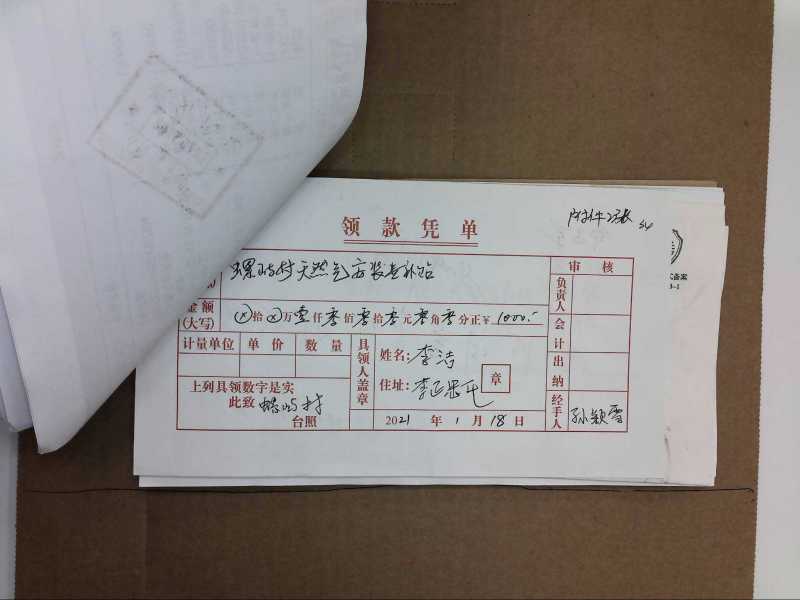 领款凭单
附件2张
天然气安装专补贴
审核
金额
(大写)
⊗拾⊗万壹仟零佰零拾零元零角零分正¥1000.-
负责人
会计
出纳
经手人
孙颖雪
计量单位 单价 数量
具领人盖章
姓名:李洁
住址:
章
上列具领数字是实
此致
台照
2021年1月18日